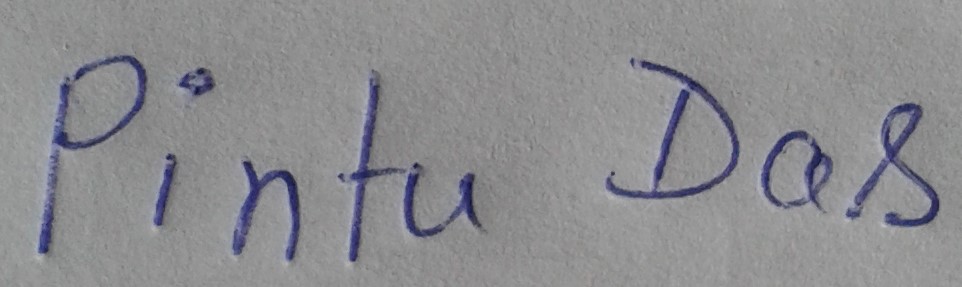 Pintu Das